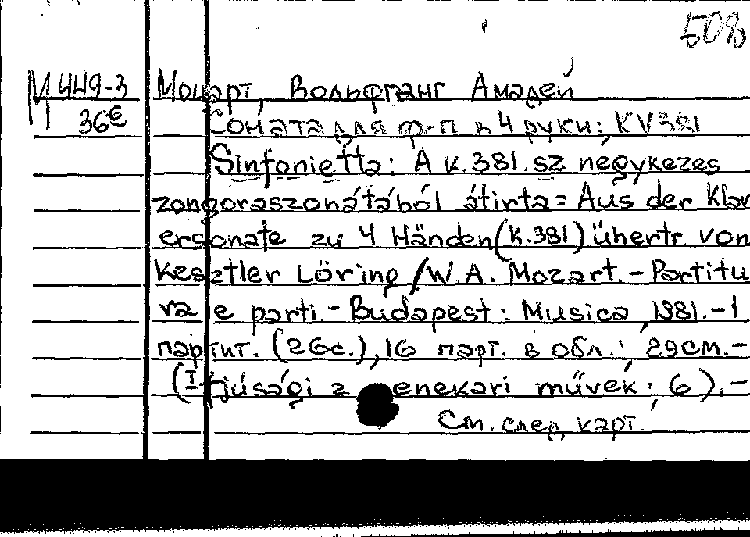 508
М 449-3 Моцарт, Вольфганг Амадей
36е Соната для ф-п в 4 руки; KV381
Sinfonietta: A K.381.sz négykezes
zongoraszonátából átirta = Aus der Klavi
ersonate zu 4 Händen (K.381) übertr von
Kesztler Löring / W.A. Mozart. - Partitu
ra e parti. - Budapest: Musica, 1981. - 1
партит. (26с.), 16 парт. в обл.; 29см. -
(Ifjúsági z enekari művek; 6). -
См. след. карт.